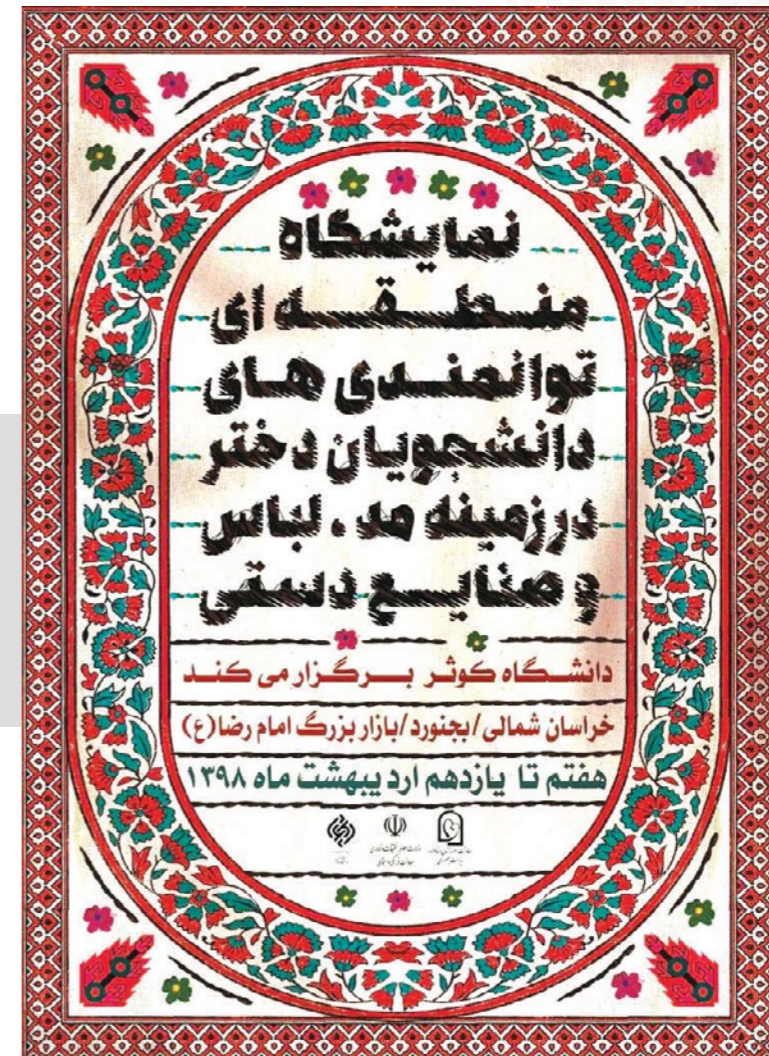 نمایشگاه
منطقه ای
توانمندی های
دانشجویان دختر
در زمینه مد ، لباس
و صنایع دستی
دانشگاه کوثر برگزار می کند
خراسان شمالی/بجنورد/بازار بزرگ امام رضا(ع)
هفتم تا یازدهم اردیبهشت ماه ۱۳۹۸